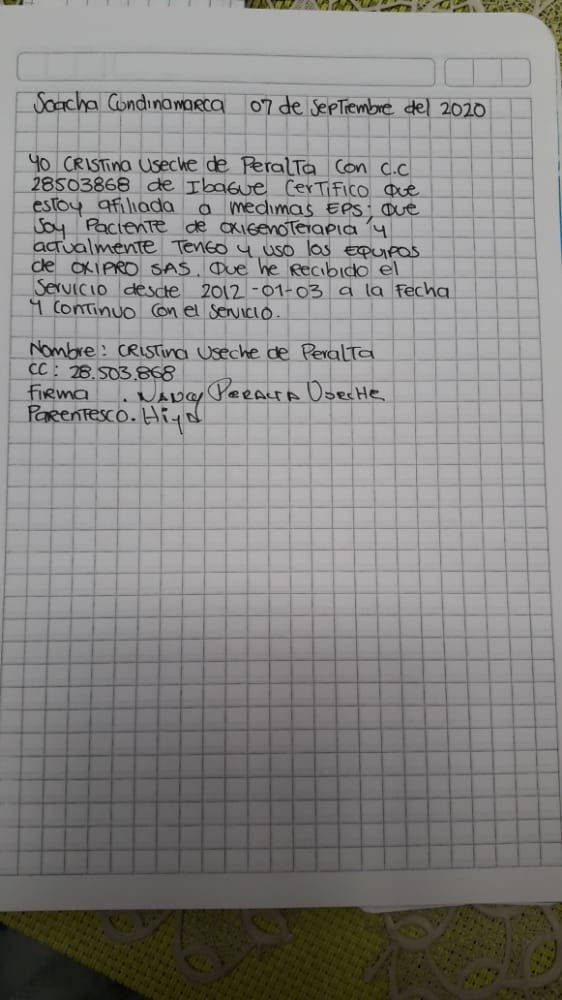 Soacha Cundinamarca 07 de Septiembre del 2020
Yo CRISTINA USECHE de PERALTA con C.C
28503868 de IBAGUE CERTIFICO QUE
estoy afiliada a medimas EPS; QUE
Soy Paciente de OXIGENOTERAPIA y
actualmente TENGO y uso los EQUIPOS
de OXIPRO SAS. QUE he RECIBIDO el
Servicio desde 2012-01-03 a la FECHA
Y CONTINUO CON el SERVICIO.
Nombre: CRISTINA USECHE de PERALTA
CC: 28.503.868
FIRMA . NANCY PERALTA USECHE
PARENTESCO. HIJA